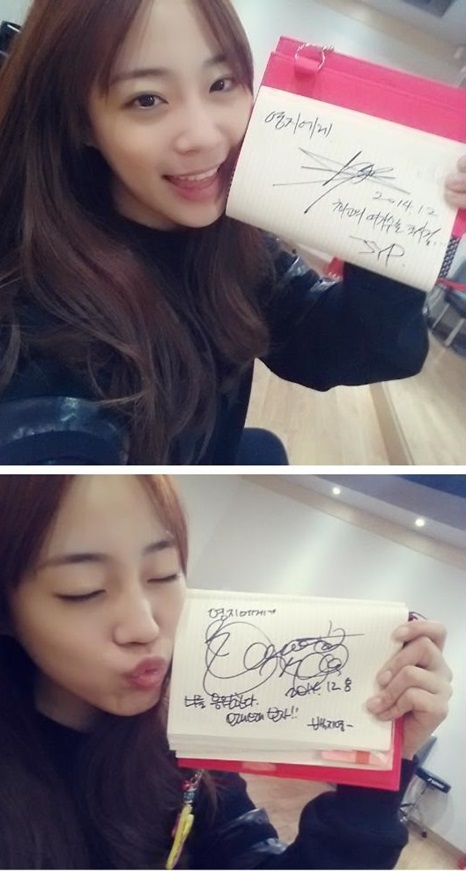 영지에게
2014.12
최고의 여가수로
영지에게
2014.12.8
너를 응원한다.
오래오래 보자!!
백지영-